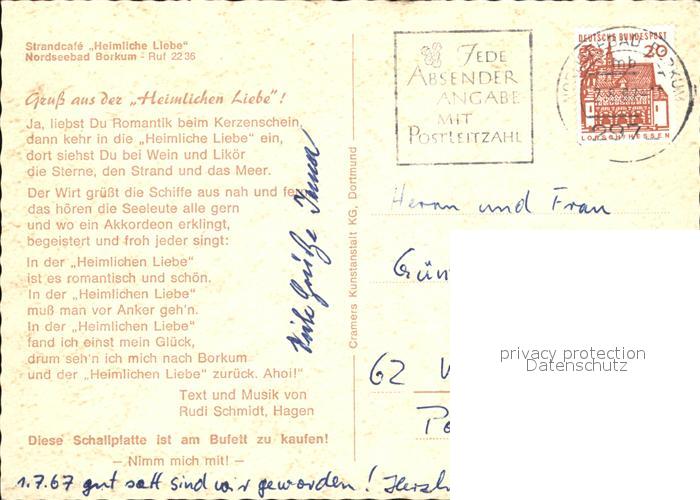 Strandcafé „Heimliche Liebe"
Nordseebad Borkum - Ruf 2236
Gruß aus der „Heimlichen Liebe"!
Ja, liebst Du Romantik beim Kerzenschein,
dann kehr in die „Heimliche Liebe" ein,
dort siehst Du bei Wein und Likör
die Sterne, den Strand und das Meer.
Der Wirt grüßt die Schiffe aus nah und fern
das hören die Seeleute alle gern
und wo ein Akkordeon erklingt,
begeistert und froh jeder singt:
In der „Heimlichen Liebe"
ist es romantisch und schön.
In der „Heimlichen Liebe"
muß man vor Anker geh'n.
In der „Heimlichen Liebe"
fand ich einst mein Glück,
drum seh'n ich mich nach Borkum
und der „Heimlichen Liebe" zurück. Ahoi!"
Text und Musik von
Rudi Schmidt, Hagen
Diese Schallplatte ist am Bufett zu kaufen!
— Nimm mich mit! —
1.7.67 gut satt sind wir geworden! Herzl
Viele Grüße
Cramers Kunstanstalt KG, Dortmund
JEDE
ABSENDER
ANGABE
MIT
POSTLEITZAHL
DEUTSCHE BUNDESPOST
20
LORSCH/HESSEN
Herrn und Frau
Gün
62 W
Po
privacy protection
Datenschutz